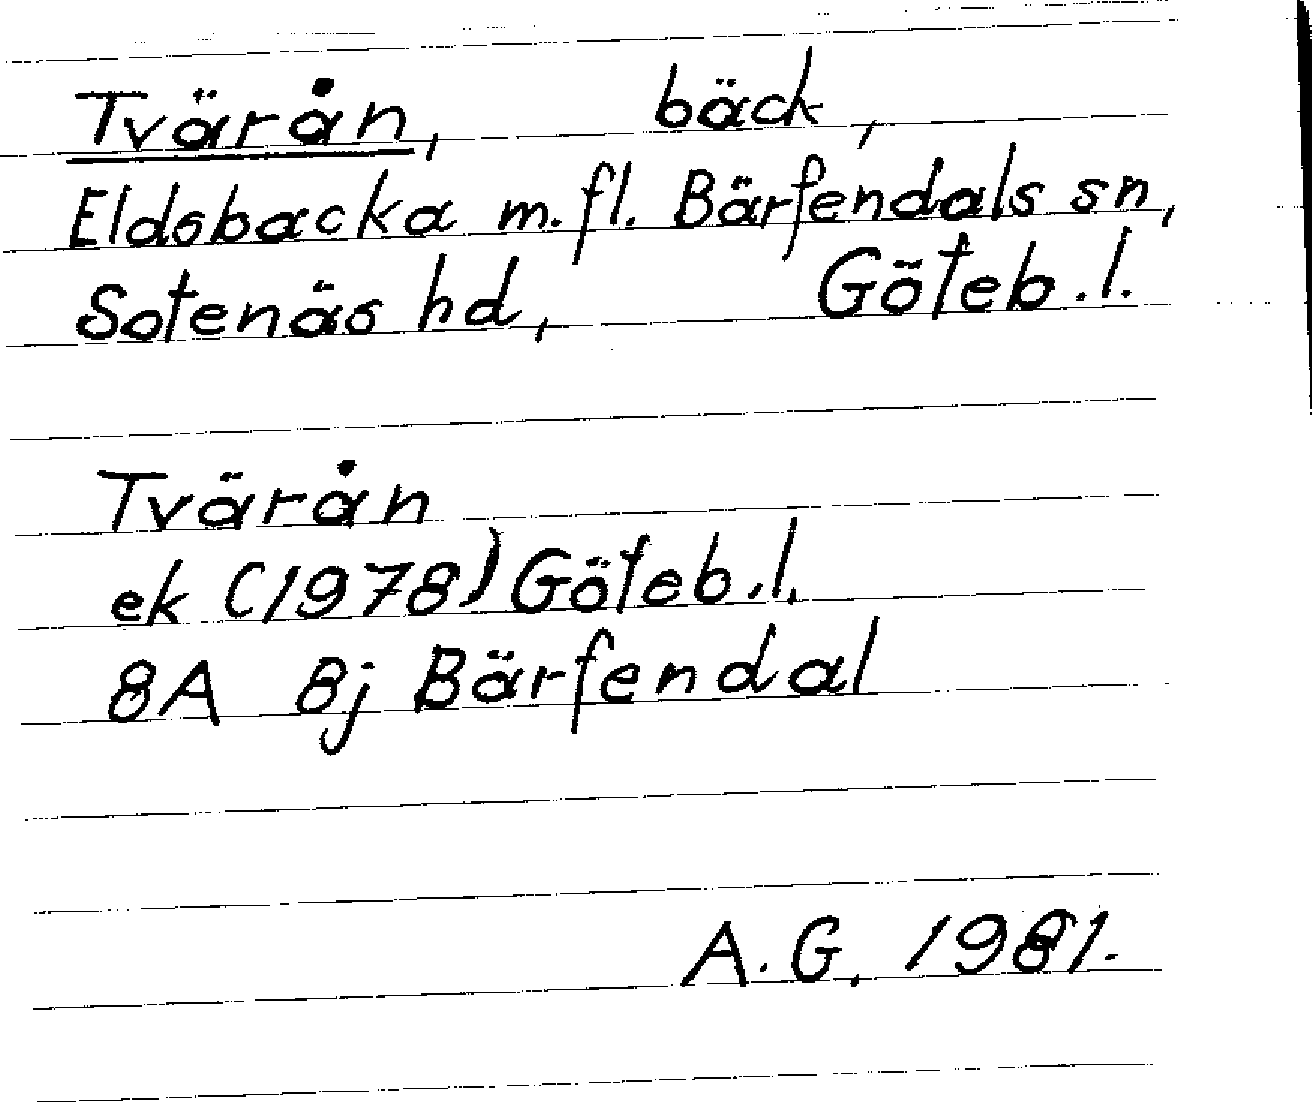 Tvärån, bäck,
Eldsbacka m.fl. Bärfendals sn,
Sotenäs hd, Göteb.l.
Tvärån
ek (1978) Göteb.l.
8A 8j Bärfendal
A.G. 1981.